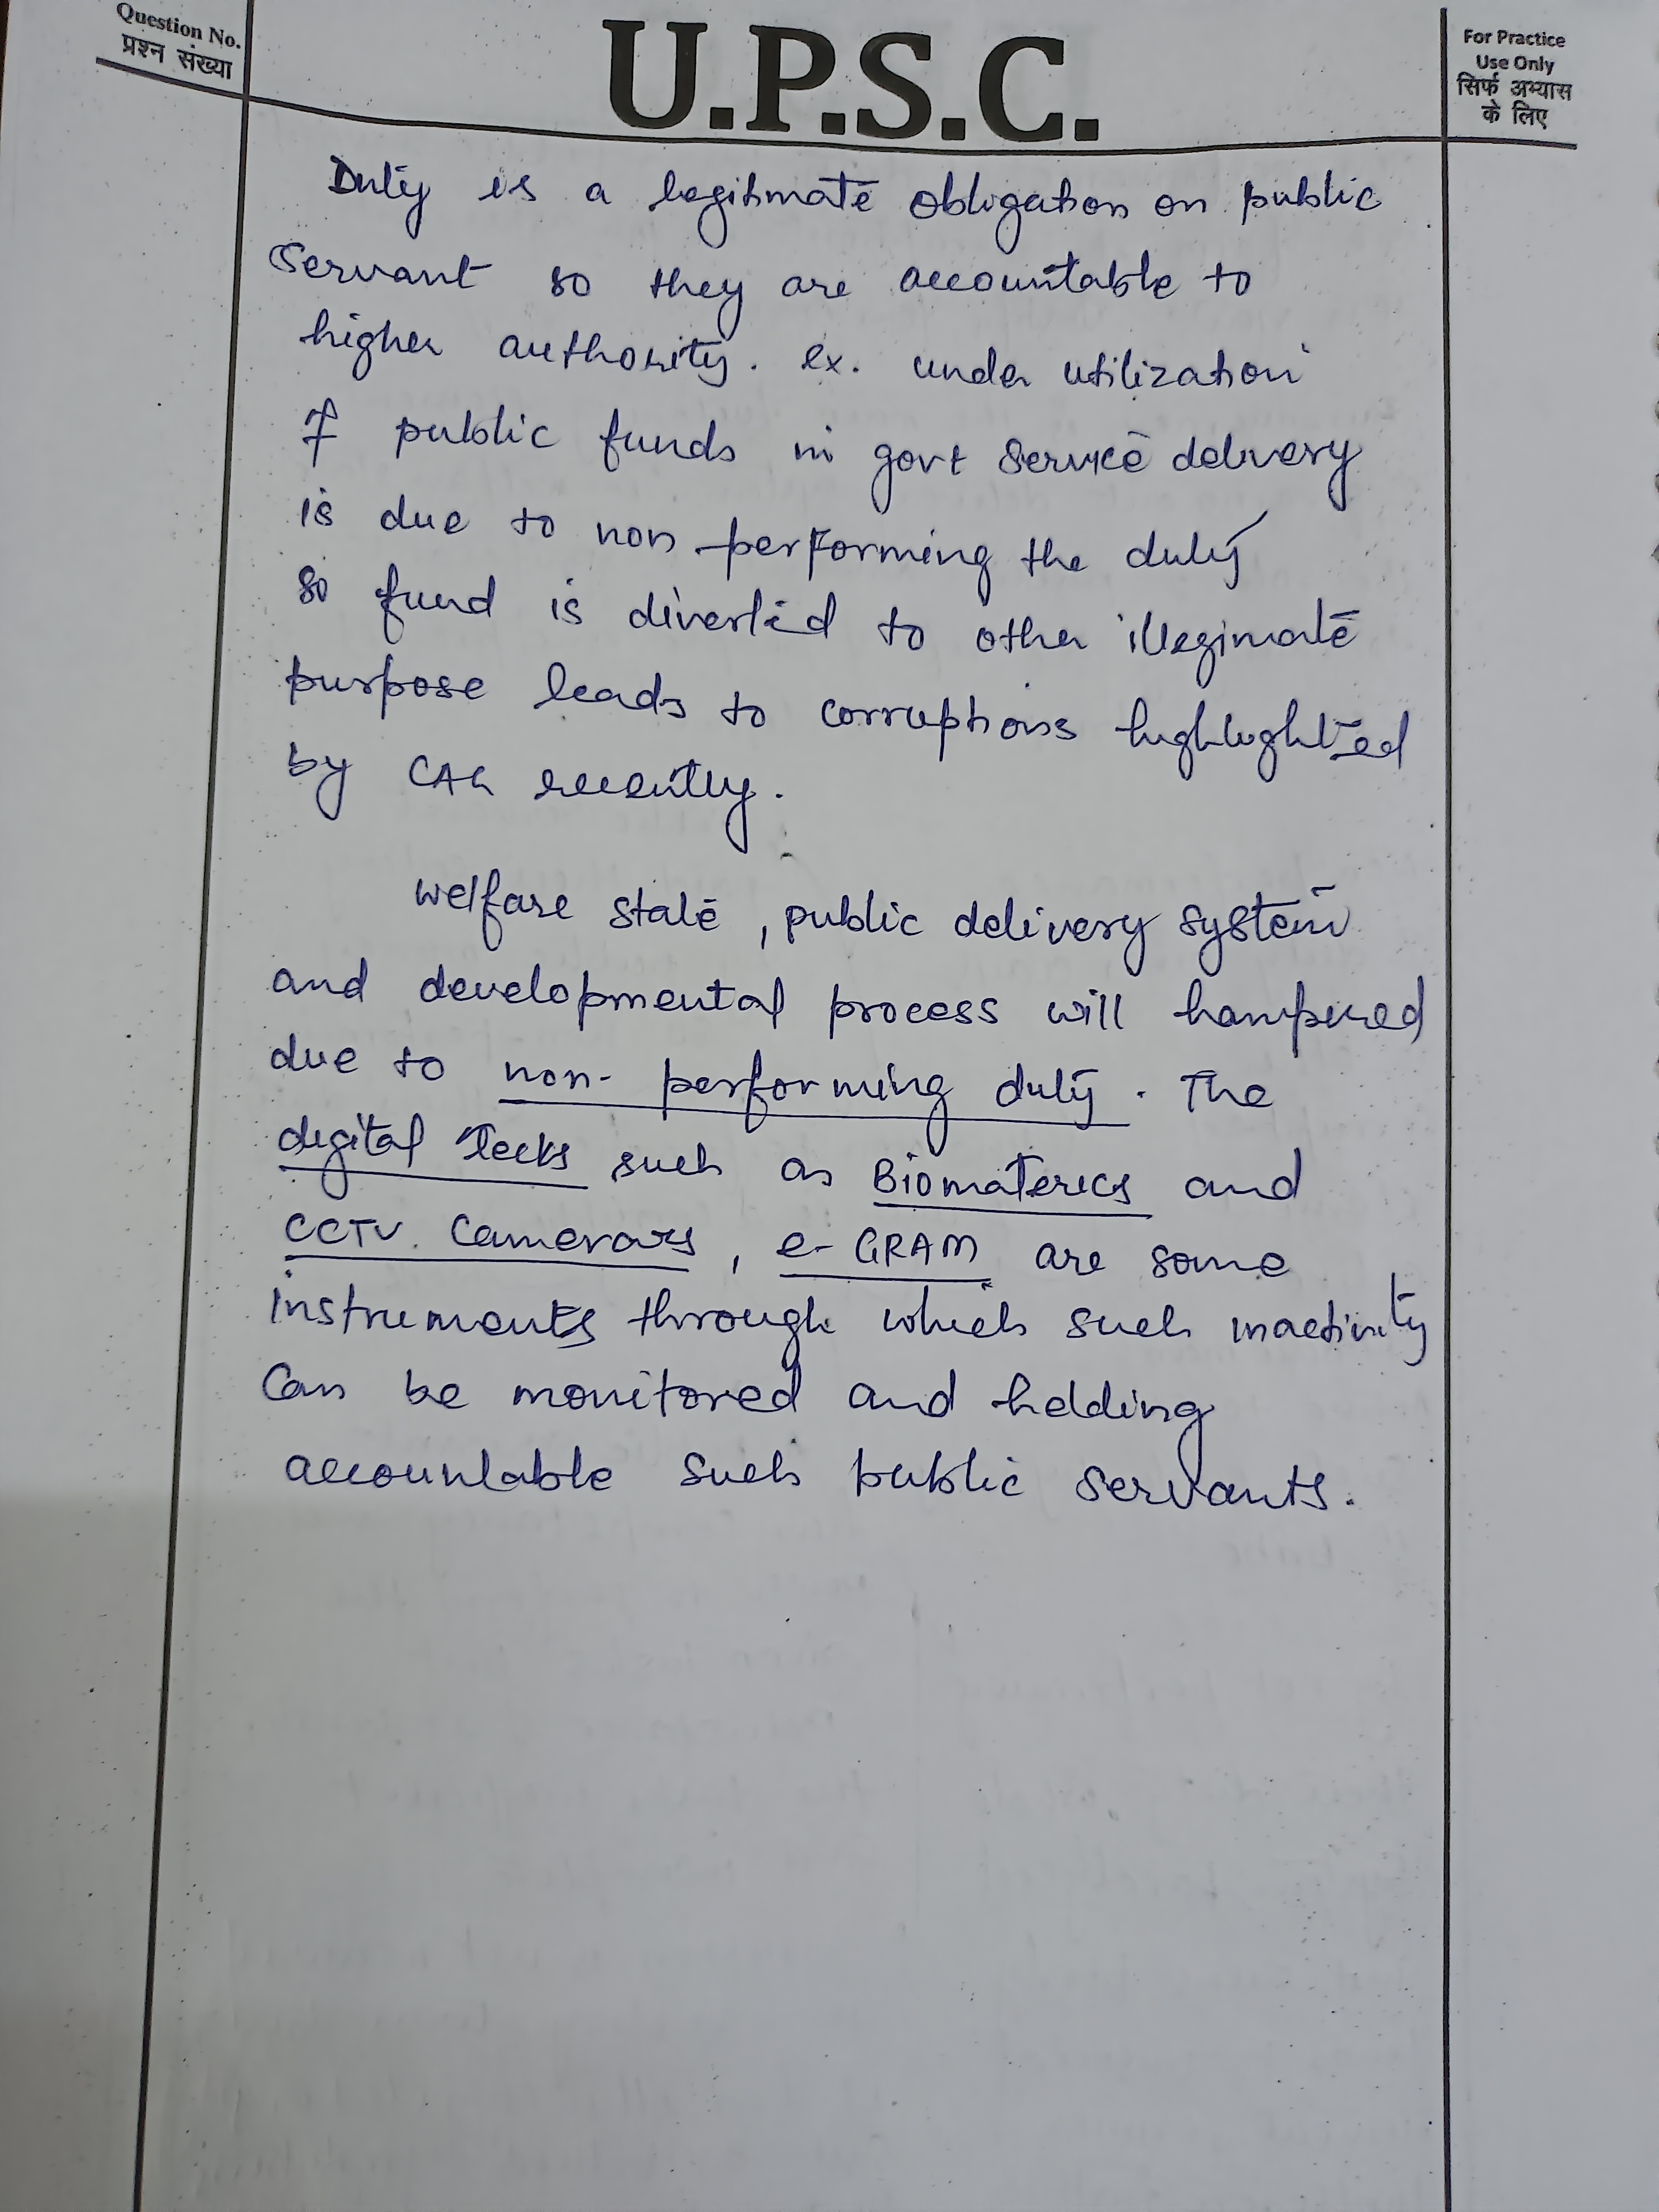 Question No.
प्रश्न संख्या
U.P.S.C.
For Practice
Use Only
सिर्फ अभ्यास
के लिए
Duty is a legitimate obligation on public
servant so they are accountable to
higher authority. ex. under utilization
of public funds in govt service delivery
is due to non performing the duty
so fund is diverted to other illegimate
purpose leads to corruptions highlighted
by CAG recently.
welfare state, public delivery system
and developmental process will hampered
due to non-performing duty. The
digital Tecks such as Biomaterics and
CCTV. Camerars, e-GRAM are some
instruments through which such inactivity
can be monitored and holding
accountable such public servants.